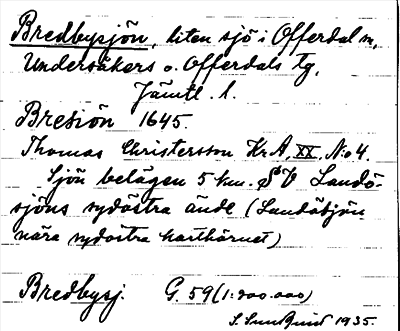 Bredbysjön, liten sjö i Offerdal sn,
Undersåkers o. Offerdals tg,
Jämtl. l.
Bresiön 1645.
Thomas Christersson Kr.A, XX. No 4.
Sjön belägen 5 km. SV Landö-
sjöns sydöstra ände (Landösjön
nära sydöstra karthörnet)
Bredbysj. G. 59 (1:200.000)
1935.